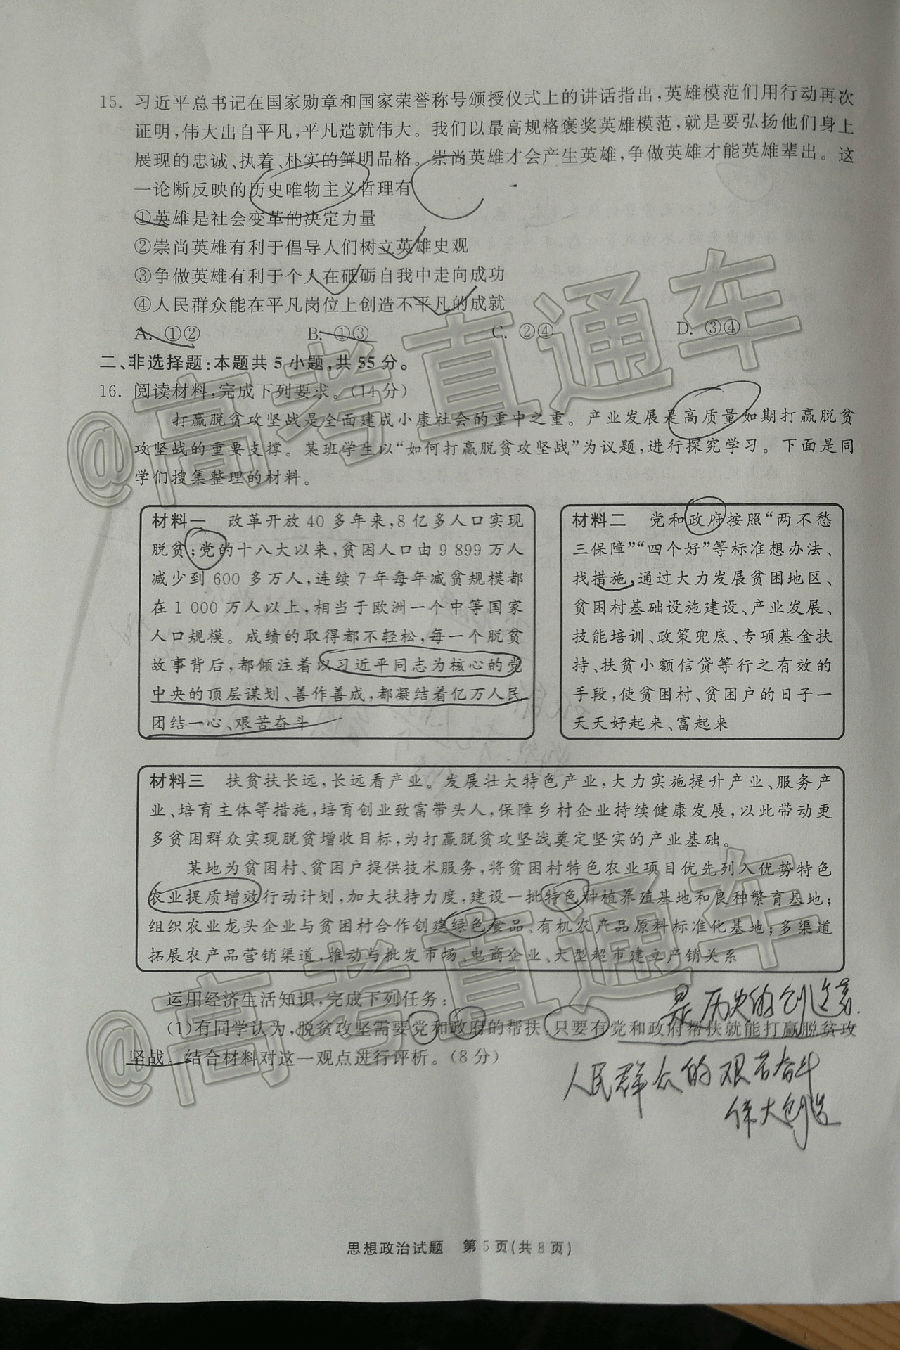 15. 习近平总书记在国家勋章和国家荣誉称号颁授仪式上的讲话指出,英雄模范们用行动再次
证明,伟大出自平凡,平凡造就伟大。我们以最高规格褒奖英雄模范,就是要弘扬他们身上
展现的忠诚、执着、朴实的鲜明品格。崇尚英雄才会产生英雄,争做英雄才能英雄辈出。这
一论断反映的历史唯物主义哲理有
①英雄是社会变革的决定力量
②崇尚英雄有利于倡导人们树立英雄史观
③争做英雄有利于个人在砥砺自我中走向成功
④人民群众能在平凡岗位上创造不平凡的成就
A. ①② B. ①③ C. ②④ D. ③④
二、非选择题:本题共5小题,共55分。
16. 阅读材料,完成下列要求。(14分)
打赢脱贫攻坚战是全面建成小康社会的重中之重。产业发展是高质量如期打赢脱贫
攻坚战的重要支撑。某班学生以“如何打赢脱贫攻坚战”为议题,进行探究学习。下面是同
学们搜集整理的材料。
材料一 改革开放40多年来,8亿多人口实现
脱贫;党的十八大以来,贫困人口由9 899万人
减少到600多万人,连续7年每年减贫规模都
在1 000万人以上,相当于欧洲一个中等国家
人口规模。成绩的取得都不轻松,每一个脱贫
故事背后,都倾注着以习近平同志为核心的党
中央的顶层谋划、善作善成,都凝结着亿万人民
团结一心、艰苦奋斗
材料二 党和政府按照“两不愁
三保障”“四个好”等标准想办法、
找措施,通过大力发展贫困地区、
贫困村基础设施建设、产业发展、
技能培训、政策兜底、专项基金扶
持、扶贫小额信贷等行之有效的
手段,使贫困村、贫困户的日子一
天天好起来、富起来
材料三 扶贫扶长远,长远看产业。发展壮大特色产业,大力实施提升产业、服务产
业、培育主体等措施,培育创业致富带头人,保障乡村企业持续健康发展,以此带动更
多贫困群众实现脱贫增收目标,为打赢脱贫攻坚战奠定坚实的产业基础。
某地为贫困村、贫困户提供技术服务,将贫困村特色农业项目优先列入优势特色
农业提质增效行动计划,加大扶持力度,建设一批特色种植养殖基地和良种繁育基地;
组织农业龙头企业与贫困村合作创建绿色食品、有机农产品原料标准化基地;多渠道
拓展农产品营销渠道,推动与批发市场、电商企业、大型超市建立产销关系
运用经济生活知识,完成下列任务:
是历史的创造者
(1)有同学认为,脱贫攻坚需要党和政府的帮扶,只要有党和政府帮扶就能打赢脱贫攻
坚战。结合材料对这一观点进行评析。(8分)
人民群众的艰苦奋斗
伟大创造
思想政治试题 第5页(共8页)
@高考直通车
@高考直通车